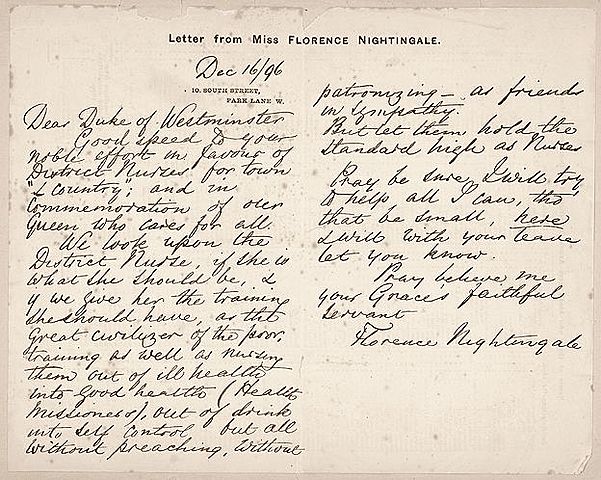 Letter from Miss FLORENCE NIGHTINGALE.
Dec 16/96
10, SOUTH STREET,
PARK LANE W.
Dear Duke of Westminster
Good speed to your
noble effort in favour of
District Nurses for town
"& Country"; and in
Commemoration of our
Queen who cares for all.
We look upon the
District Nurse, if she is
what she should be, &
if we give her the training
she should have, as the
great civilizer of the poor,
training as well as nursing
them out of ill health
into good health (Health
Missioners), out of drink
into self control but all
without preaching, without
patronizing – as friends
in sympathy.
But let them hold the
standard high as Nurses
Pray be sure I will try
to help all I can, tho'
that be small, here
I will with your leave
let you know.
Pray believe me
your Grace's faithful
servant
Florence Nightingale